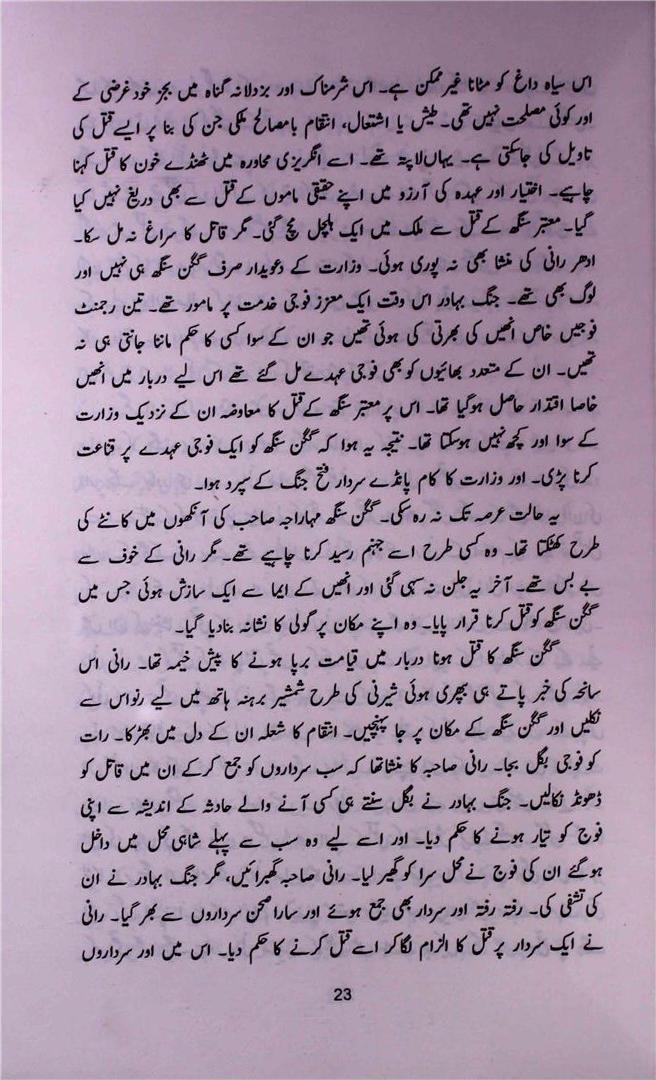 اس سیاہ داغ کو مٹانا غیر ممکن ہے۔ اس شرمناک اور بزدلانہ گناہ میں بجز خود غرضی کے
اور کوئی مصلحت نہیں تھی۔ طیش یا اشتعال، انتقام یا مصالح ملکی جن کی بنا پر ایسے قتل کی
تاویل کی جاسکتی ہے۔ یہاں لاپتہ تھے۔ اسے انگریزی محاورہ میں ٹھنڈے خون کا قتل کہنا
چاہیے۔ اختیار اور عہدہ کی آرزو میں اپنے حقیقی ماموں کے قتل سے بھی دریغ نہیں کیا
گیا۔ معتبر سنگھ کے قتل سے ملک میں ایک ہلچل مچ گئی۔ مگر قاتل کا سراغ نہ مل سکا۔
ادھر رانی کی منشا بھی نہ پوری ہوئی۔ وزارت کے دعویدار صرف گگن سنگھ ہی نہیں اور
لوگ بھی تھے۔ جنگ بہادر اس وقت ایک معزز فوجی خدمت پر مامور تھے۔ تین رجمنٹ
فوجیں خاص انھیں کی بھرتی کی ہوئی تھیں جو ان کے سوا کسی کا حکم ماننا جانتی ہی نہ
تھیں۔ ان کے متعدد بھائیوں کو بھی فوجی عہدے مل گئے تھے اس لیے دربار میں انھیں
خاصا اقتدار حاصل ہوگیا تھا۔ اس پر معتبر سنگھ کے قتل کا معاوضہ ان کے نزدیک وزارت
کے سوا اور کچھ نہیں ہوسکتا تھا۔ نتیجہ یہ ہوا کہ گگن سنگھ کو ایک فوجی عہدے پر قناعت
کرنا پڑی۔ اور وزارت کا کام پانڈے سردار فتح جنگ کے سپرد ہوا۔
یہ حالت عرصہ تک نہ رہ سکی۔ گگن سنگھ مہاراجہ صاحب کی آنکھوں میں کانٹے کی
طرح کھٹکتا تھا۔ وہ کسی طرح اسے جہنم رسید کرنا چاہیے تھے۔ مگر رانی کے خوف سے
بے بس تھے۔ آخر یہ جلن نہ سہی گئی اور انھیں کے ایما سے ایک سازش ہوئی جس میں
گگن سنگھ کو قتل کرنا قرار پایا۔ وہ اپنے مکان پر گولی کا نشانہ بنادیا گیا۔
گگن سنگھ کا قتل ہونا دربار میں قیامت برپا ہونے کا پیش خیمہ تھا۔ رانی اس
سانحہ کی خبر پاتے ہی بپھری ہوئی شیرنی کی طرح شمشیر برہنہ ہاتھ میں لیے رنواس سے
نکلیں اور گگن سنگھ کے مکان پر جا پہنچیں۔ انتقام کا شعلہ ان کے دل میں بھڑکا۔ رات
کو فوجی بگل بجا۔ رانی صاحبہ کا منشا تھا کہ سب سرداروں کو جمع کرکے ان میں قاتل کو
ڈھونڈ نکالیں۔ جنگ بہادر نے بگل سنتے ہی کسی آنے والے حادثہ کے اندیشہ سے اپنی
فوج کو تیار ہونے کا حکم دیا۔ اور اسے لیے وہ سب سے پہلے شاہی محل میں داخل
ہوگئے ان کی فوج نے محل سرا کو گھیر لیا۔ رانی صاحبہ گھبرائیں، مگر جنگ بہادر نے ان
کی تشفی کی۔ رفتہ رفتہ اور سردار بھی جمع ہوئے اور سارا صحن سرداروں سے بھر گیا۔ رانی
نے ایک سردار پر قتل کا الزام لگاکر اسے قتل کرنے کا حکم دیا۔ اس میں اور سرداروں
23